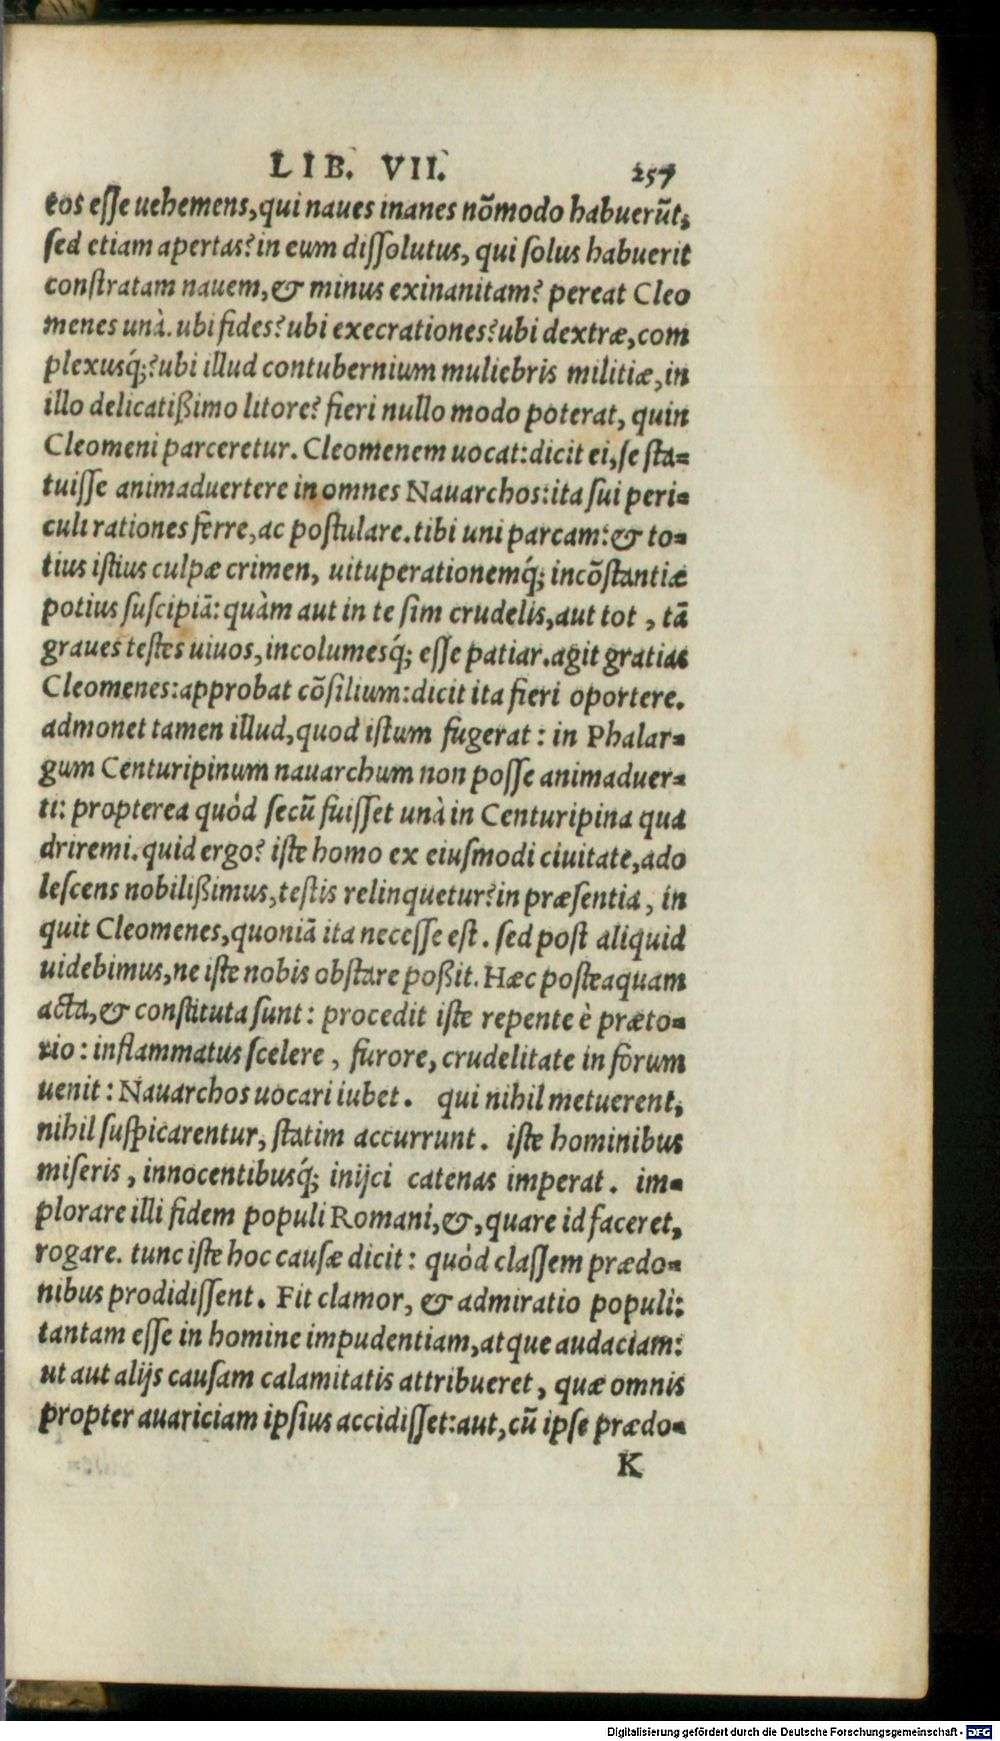 LIB. VII. 257
eos esse uehemens,qui naues inanes nõmodo habuerũt,
sed etiam apertas?in eum dissolutus, qui solus habuerit
constratam nauem,& minus exinanitam? pereat Cleo
menes unà. ubi fides?ubi execrationes?ubi dextræ,com
plexusq́;?ubi illud contubernium muliebris militiæ,in
illo delicatißimo litore? fieri nullo modo poterat, quin
Cleomeni parceretur. Cleomenem uocat:dicit ei,se sta-
tuisse animaduertere in omnes Nauarchos:ita sui peri-
culi rationes ferre,ac postulare.tibi uni parcam:& to-
tius istius culpæ crimen, uituperationemq́; incõstantiæ
potius suscipiã:quàm aut in te sim crudelis,aut tot , tã
graues testes uiuos,incolumesq́; esse patiar.agit gratias
Cleomenes:approbat cõsilium:dicit ita fieri oportere.
admonet tamen illud,quod istum fugerat : in Phalar-
gum Centuripinum nauarchum non posse animaduer-
ti: propterea quòd secũ fuisset unà in Centuripina qua
driremi.quid ergo? iste homo ex eiusmodi ciuitate,ado
lescens nobilißimus,testis relinquetur?in præsentia , in
quit Cleomenes,quoniã ita necesse est . sed post aliquid
uidebimus,ne iste nobis obstare poßit. Hæc posteaquam
acta,& constituta sunt : procedit iste repente è præto-
rio : inflammatus scelere , furore, crudelitate in forum
uenit : Nauarchos uocari iubet . qui nihil metuerent,
nihil suspicarentur, statim accurrunt . iste hominibus
miseris , innocentibusq́; inijci catenas imperat . im-
plorare illi fidem populi Romani,&,quare id faceret,
rogare. tunc iste hoc causæ dicit : quòd classem prædo-
nibus prodidissent. Fit clamor, & admiratio populi:
tantam esse in homine impudentiam,atque audaciam:
ut aut alijs causam calamitatis attribueret , quæ omnis
propter auariciam ipsius accidisset:aut,cũ ipse prædo-
K
Digitalisierung gefördert durch die Deutsche Forschungsgemeinschaft - DFG